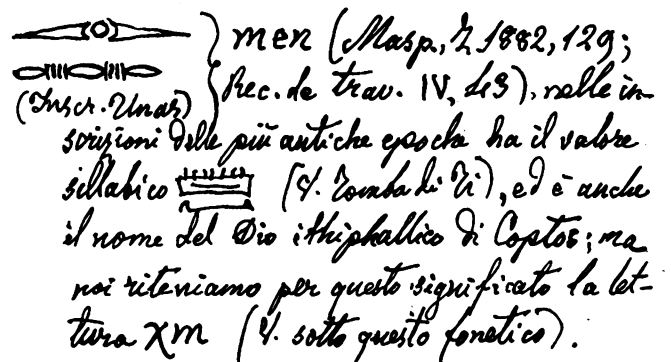 men (Masp, Z 1882, 129;
(Inscr. Unas) Rec. de trav. IV, 43), nelle in-
scrizioni delle più antiche epoche ha il valore
sillabico (V. Tomba di Ti), ed è anche
il nome del Dio ithiphallico di Coptos; ma
noi riteniamo per questo significato la let-
tura χm (V. sotto questo fonetico).